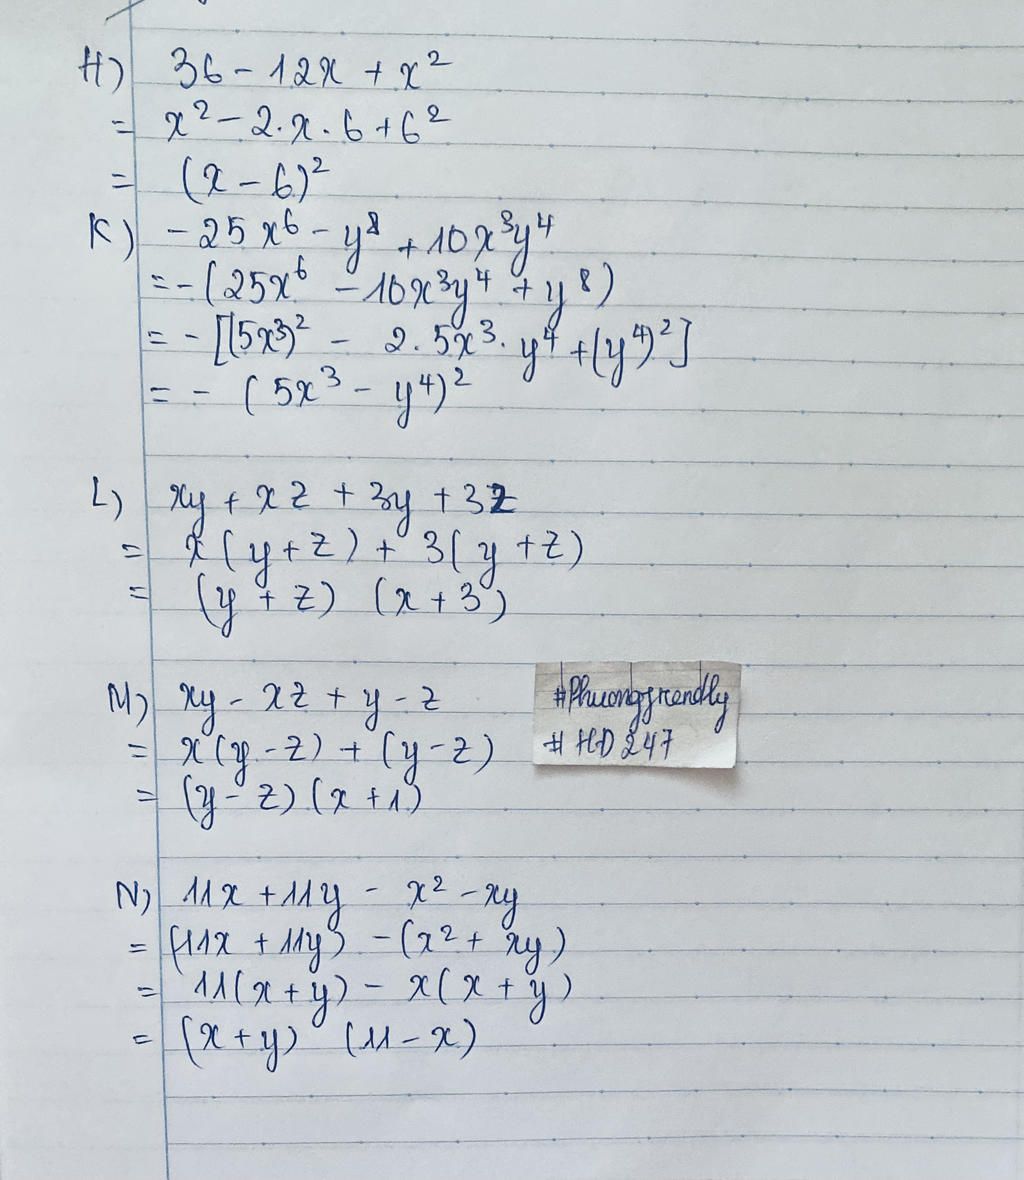 H) 36 - 12x + x²
= x² - 2.x.6 + 6²
= (x - 6)²
K) - 25x⁶ - y⁸ + 10x³y⁴
= - (25x⁶ - 10x³y⁴ + y⁸)
= - [(5x³)² - 2.5x³.y⁴ + (y⁴)²]
= - (5x³ - y⁴)²
L) xy + xz + 3y + 3z
= x(y + z) + 3(y + z)
= (y + z) (x + 3)
M) xy - xz + y - z
= x(y - z) + (y - z)
= (y - z)(x + 1)
#Phuongfrendly
#HD247
N) 11x + 11y - x² - xy
= (11x + 11y) - (x² + xy)
= 11(x + y) - x(x + y)
= (x + y) (11 - x)